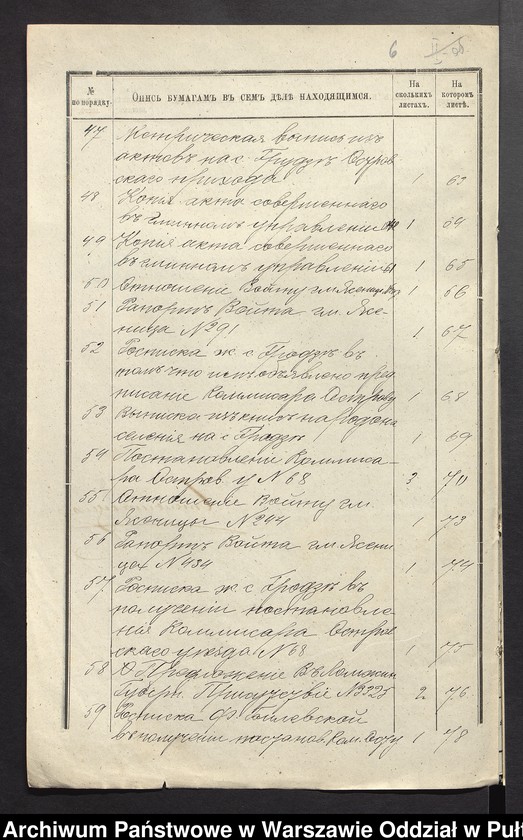 6
№ по порядку.
Опись бумагамъ въ семъ дѣлѣ находящимся.
На сколькихъ листахъ.
На которомъ листѣ.
47 Метрическая выпись изъ
актовъ на с. Грудзъ Остров
скаго прихода 1 63
48 Копія акта совершеннаго
въ гминномъ управленіи 1 64
49 Копія акта совершеннаго
въ гминномъ управленіи 1 65
50 Отношеніе Войту гм. Ясеница 1 66
51 Рапортъ Войта гм. Ясе-
ница №291 1 67
52 Росписка ж. с. Гродзкъ въ
томъ что имъ объявлено пред
писаніе Коммисара Островъ 1 68
53 Выписка изъ книгъ народона
селенія на с. Гродзкъ 1 69
54 Постановленіе Коммиса-
ра Остров. у №68 3 70
55 Отношеніе Войту гм.
Ясеницы №244 1 73
56 Рапортъ Войта гм. Ясени
ца №434 1 74
57 Росписка ж. с. Гродзкъ въ
полученіи постановле
нія Коммисара Остров
скаго уѣзда №68 1 75
58 Предложеніе Въ Ломжин
Губерн. Присутствіе №3325 2 76
59 Росписка Ф.
въ полученіи постанов. Ком. 1 78
Archiwum Państwowe w Warszawie Oddział w Puł